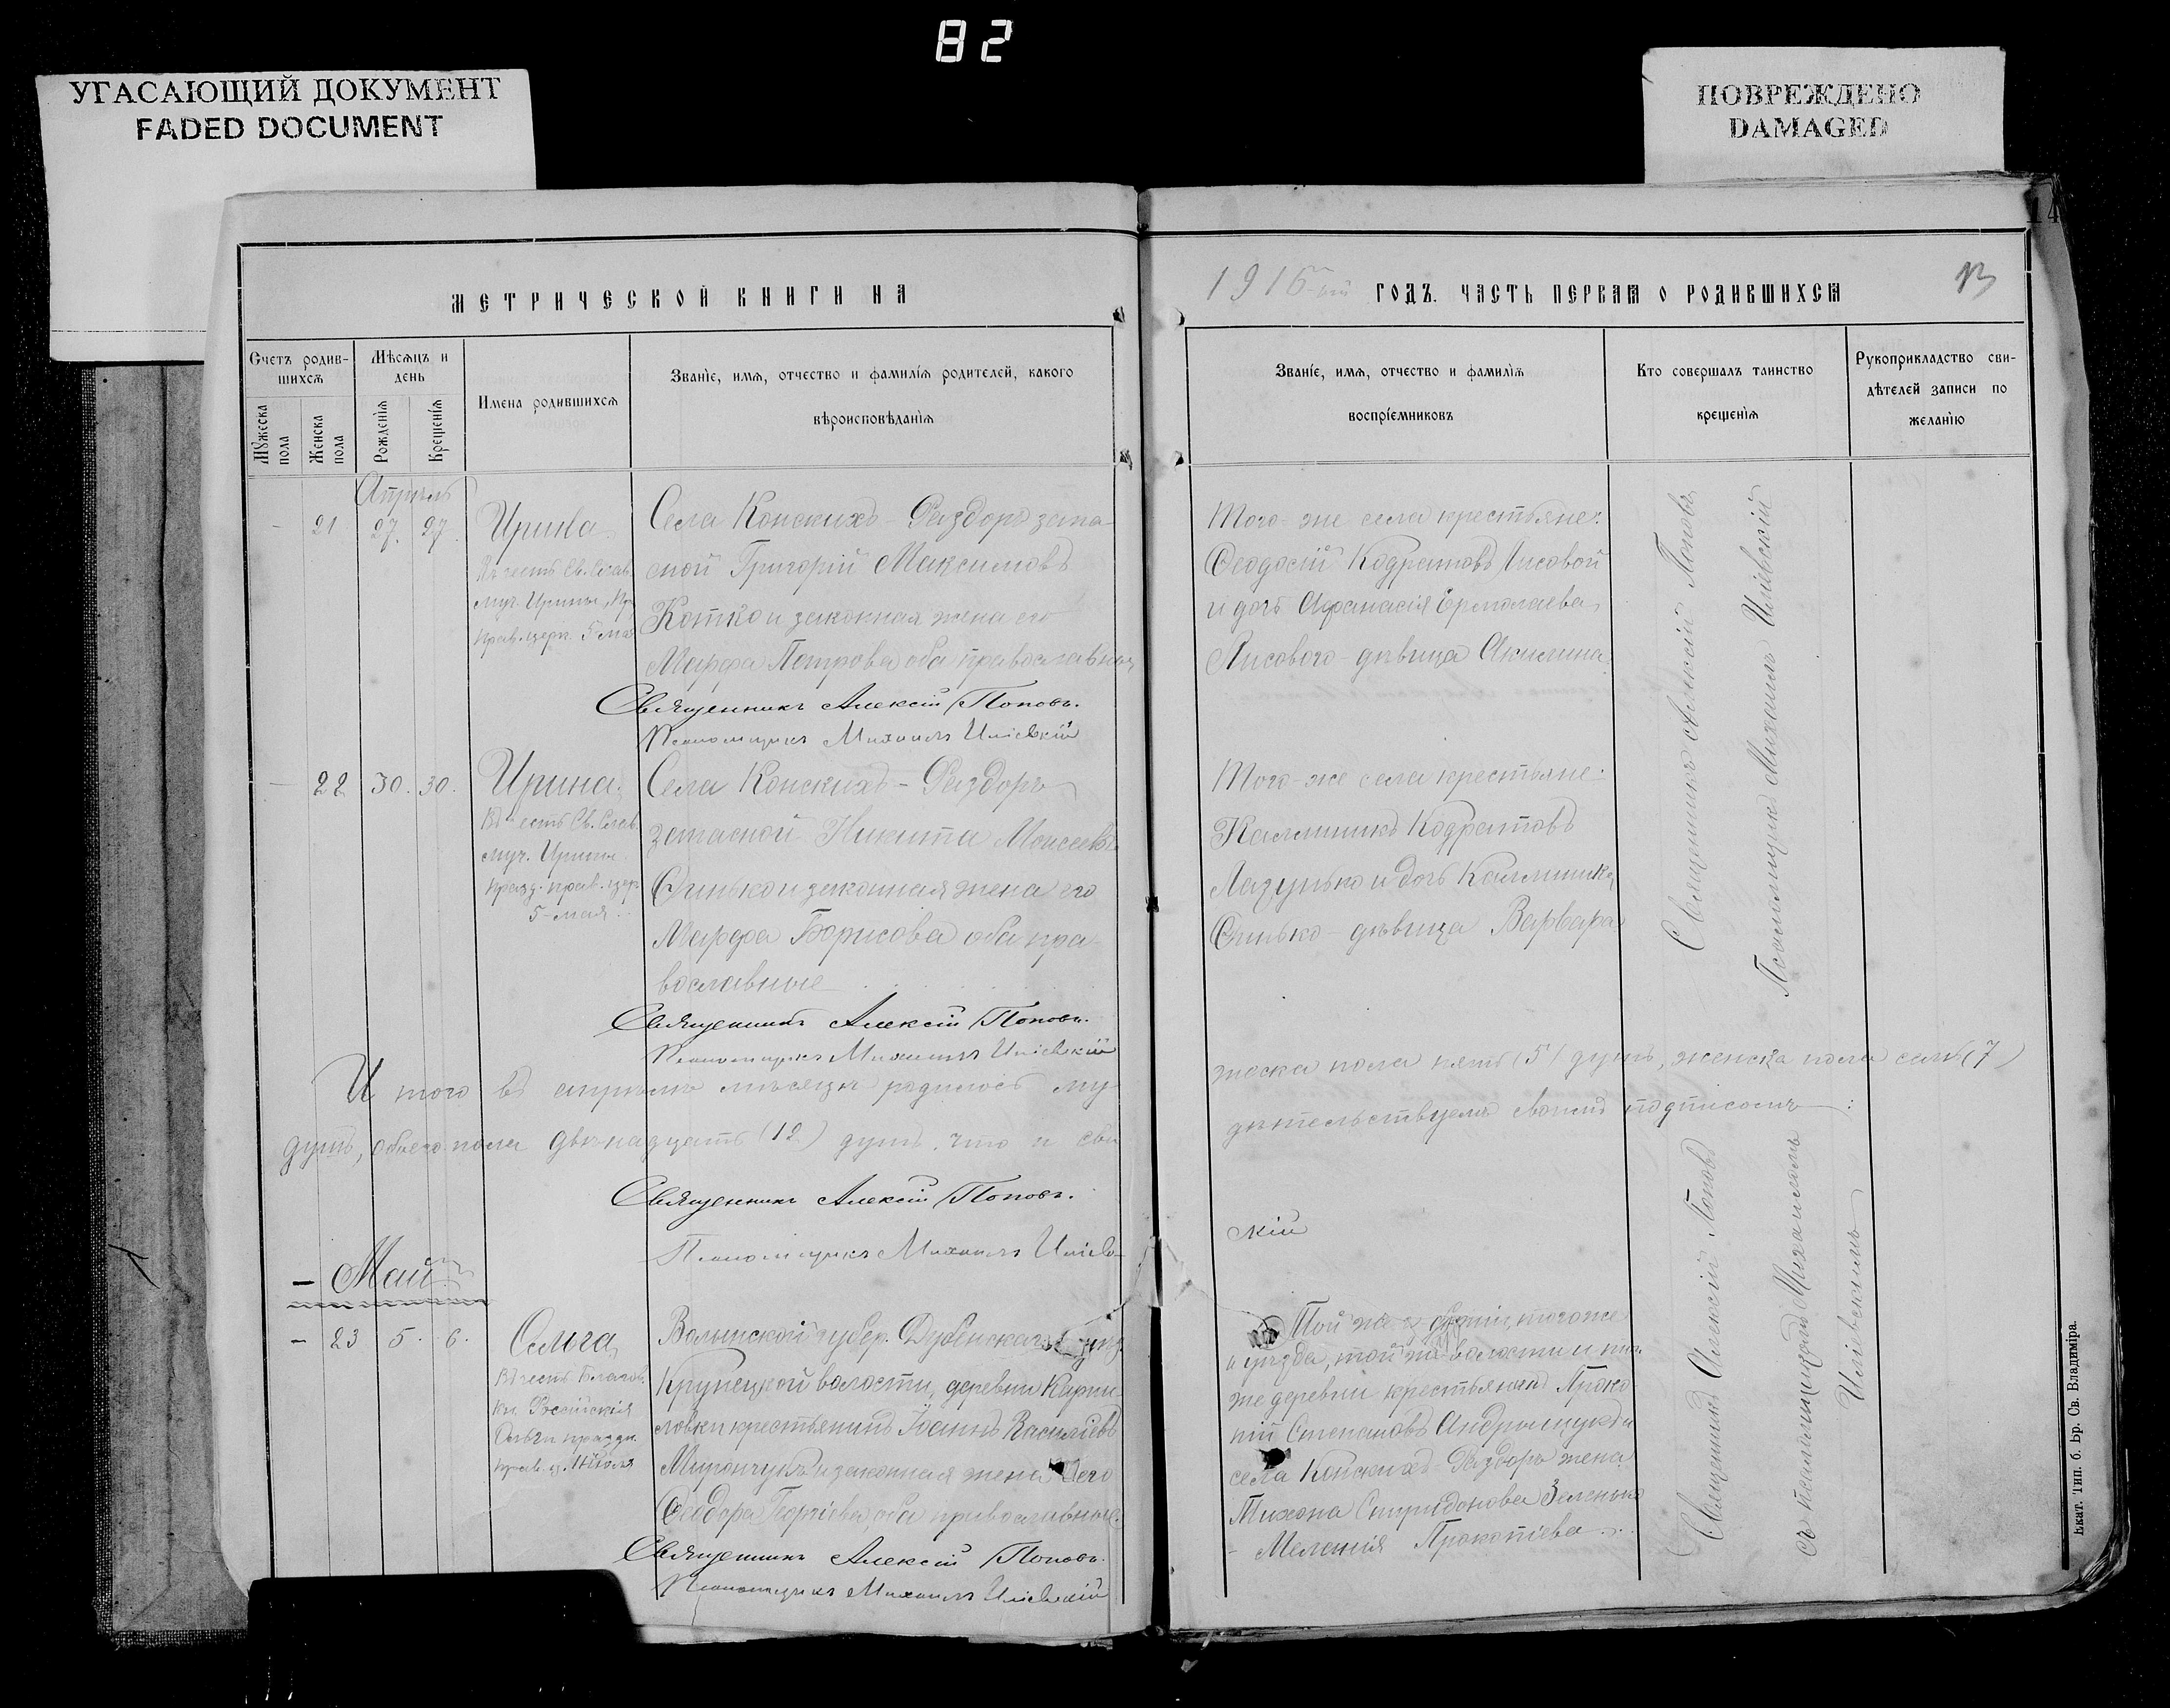 82
УГАСАЮЩИЙ ДОКУМЕНТ
FADED DOCUMENT
ПОВРЕЖДЕНО
DAMAGED
14
МЕТРИЧЕСКОЙ КНИГИ НА
Счетъ родив-
шихся
Мѣсяцъ и
день
Имена родившихся
Званіе, имя, отчество и фамилія родителей, какого
вѣроисповѣданія
Мужеска
пола
Женска
пола
Рожденія
Крещенія
Апрель
- 21 27. 27.
Ирина
Въ честь Св. Слав.
муч. Ирины, Пр.
прав. церк. 5 мая
Села Конскихъ-Раздоръ запа-
сной Григорій Максимовъ
Котко и законная жена его
Марфа Петрова оба православные
Священникъ Алексій Поповъ.
Псаломщикъ Михаилъ Иліевскій
- 22 30. 30.
Ирина
Въ честь Св. Слав.
муч. Ирины
празд. прав. цер.
5-мая
Села Конскихъ-Раздоръ
запасной Никита Моисеевъ
Синько и законная жена его
Марфа Борисова оба пра-
вославные
Священникъ Алексій Поповъ.
Псаломщикъ Михаилъ Иліевскій
Итого въ апрѣлѣ мѣсяцѣ родилось му-
душъ, обоего пола двѣнадцать (12) душъ, что и сви
Священникъ Алексій Поповъ.
Псаломщикъ Михаилъ Иліев-
- Май
- 23 5. 6.
Ольга
Въ честь Благов.
кн. Россійскія
Ольги праздн.
прав. ц. 11 Іюля
Волынской губер. Дубенскаго уѣз.
Крупецкой волости, деревни Карпи-
ловки крестьянинъ Іоаннъ Василіевъ
Мирончукъ и законная жена его
Феодора Георгіева, оба православные.
Священникъ Алексій Поповъ.
Псаломщикъ Михаилъ Иліевскій
1916-ый ГОДЪ. ЧАСТЬ ПЕРВАЯ О РОДИВШИХСЯ
13
Званіе, имя, отчество и фамилія
воспріемниковъ
Кто совершалъ таинство
крещенія
Рукоприкладство сви-
дѣтелей записи по
желанію
Того-же села крестьяне:
Феодосій Кодратовъ Лисовой
и дочь Афанасія Ермолаева
Лисового-дѣвица Акилина
Того-же села крестьяне:
Каллиникъ Кодратовъ
Лазунько и дочь Каллиника
Синько-дѣвица Варвара
Священникъ Алексій Поповъ
Псаломщикъ Михаилъ Иліевскій
жеска пола пять (5) душъ, женска пола семь (7)
дѣтельствуемъ своимъ подписомъ:
скій
Той же губерніи, того же
и уѣзда, той же волости и той
же деревни крестьянинъ Проко
пій Степановъ Андрощукъ и
села Конскихъ-Раздоръ жена
Тихона Спиридонова Зеленько
- Меланія Прокопіева
Священникъ Алексій Поповъ
съ псаломщикомъ Михаиломъ
Иліевскимъ
Екат. Тип. б. Бр. Св. Владиміра.